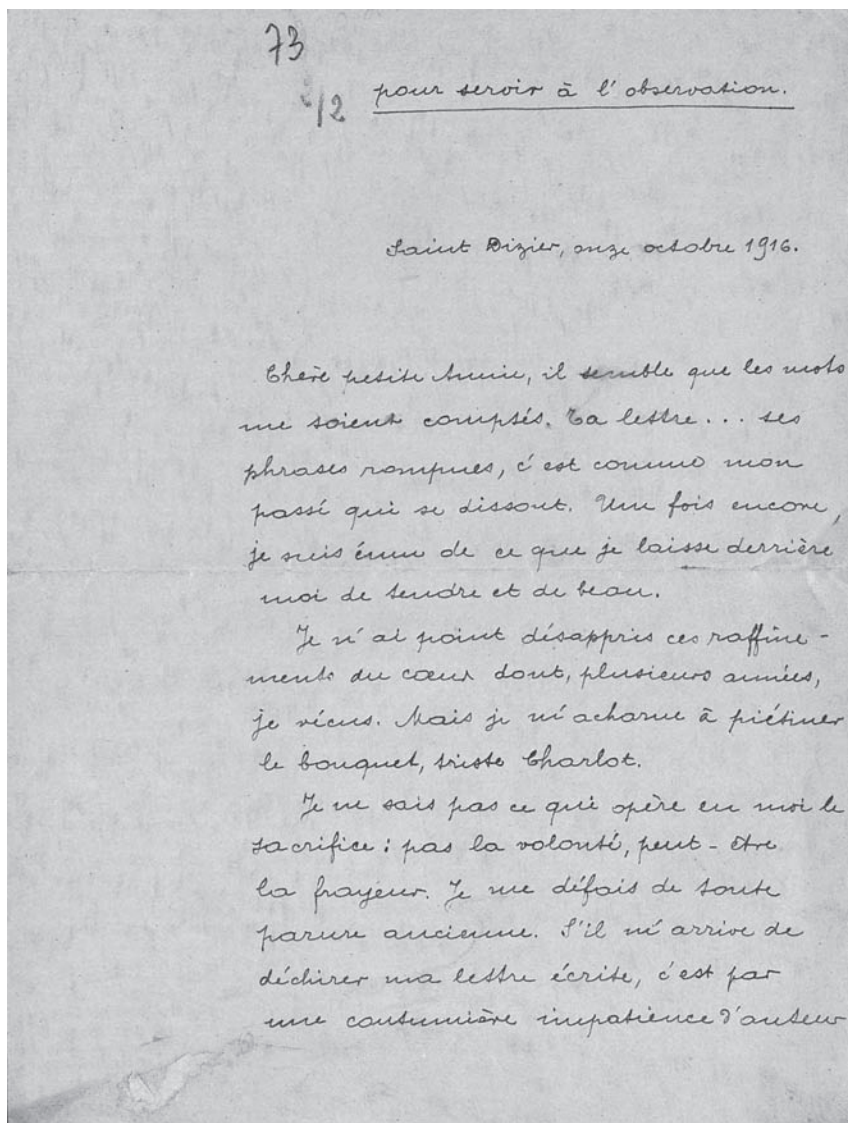 73
2/2
pour servir à l'observation.
Saint Dizier, onze octobre 1916.
Chère petite Annie, il semble que les mots
me soient comptés. Ta lettre... ses
phrases rompues, c'est comme mon
passé qui se dissout. Une fois encore,
je suis ému de ce que je laisse derrière
moi de tendre et de beau.
Je n'ai point désappris ces raffine-
ments du cœur dont, plusieurs années,
je vécus. Mais je m'acharne à piétiner
le bouquet, triste Charlot.
Je ne sais pas ce qui opère en moi le
sacrifice : pas la volonté, peut-être
la frayeur. Je me défais de toute
parure ancienne. S'il m'arrive de
déchirer ma lettre écrite, c'est par
une coutumière impatience d'auteur